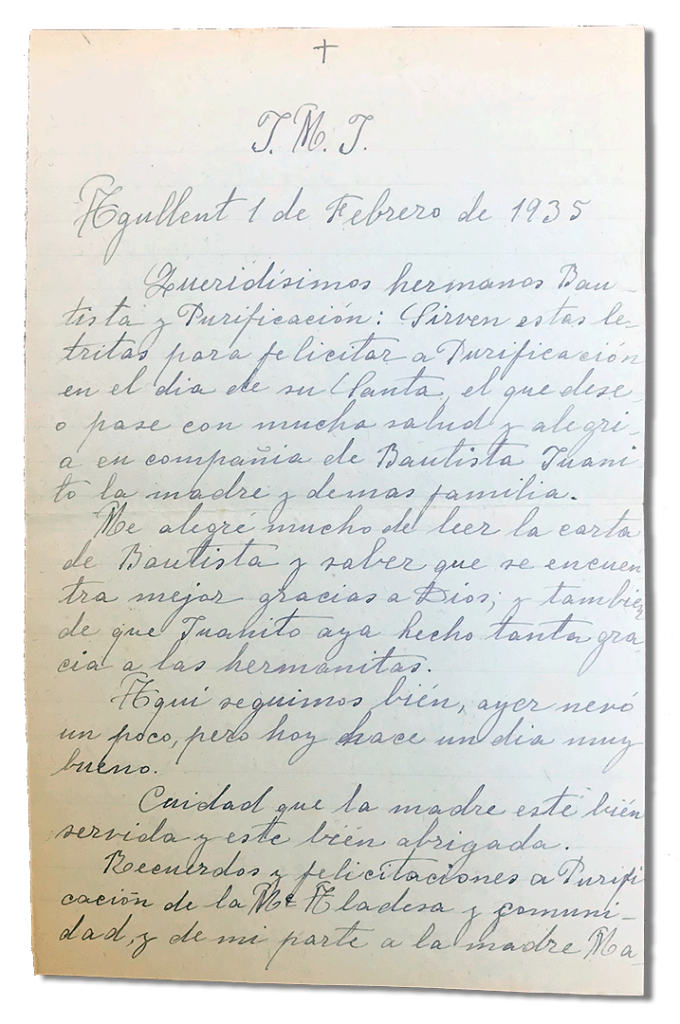 +
J. M. J.
Agullent 1 de Febrero de 1935
Queridísimos hermanos Bau-
tista y Purificación: Sirven estas le-
tritas para felicitar a Purificación
en el dia de su Santa, el que dese-
o pase con mucha salud y alegri-
a en compañia de Bautista Juani
to la madre y demas familia.
Me alegré mucho de leer la carta
de Bautista y saber que se encuen
tra mejor gracias a Dios; y tambien
de que Juanito aya hecho tanta gra-
cia a las hermanitas.
Aqui seguimos bién, ayer nevó
un poco, pero hoy hace un dia muy
bueno.
Cuidad que la madre esté bién
servida y este bién abrigada.
Recuerdos y felicitaciones a Purifi
cación de la Me Abadesa y comuni-
dad, y de mi parte a la madre Ma-